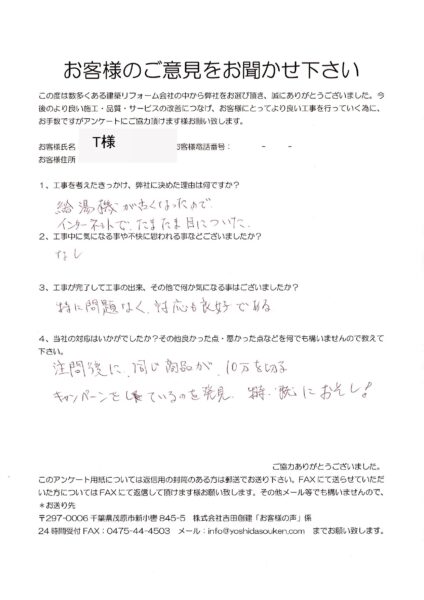 お客様のご意見をお聞かせ下さい
この度は数多くある建築リフォーム会社の中から弊社をお選び頂き、誠にありがとうございました。今
後のより良い施工・品質・サービスの改善につなげ、お客様にとってより良い工事を行っていく為に、
お手数ですがアンケートにご協力頂けます様お願い致します。
お客様氏名 T様 お客様電話番号： - -
お客様住所
1、工事を考えたきっかけ、弊社に決めた理由は何ですか？
給湯機が古くなったので
インターネットで、たまたま目についた。
2、工事中に気になる事や不快に思われる事などございましたか？
なし
3、工事が完了して工事の出来、その他で何か気になる事はございましたか？
特に問題なく、対応も良好である
4、当社の対応はいかがでしたか？その他良かった点・悪かった点などを何でも構いませんので教えて
下さい。
注問後に、同じ商品が、10万を切る
キャンペーンをしているのを発見、時、既におそし！
ご協力ありがとうございました。
このアンケート用紙については返信用の封筒のある方は郵送でお送り下さい。FAXにて送らせていただ
いた方についてはFAXにて返信して頂けます様お願い致します。その他メール等でも構いませんので、
＊お送り先
〒297-0006 千葉県茂原市新小轡 845-5 株式会社吉田創建「お客様の声」係
24時間受付FAX：0475-44-4503 メール：info@yoshidasouken.com までお願い致します。